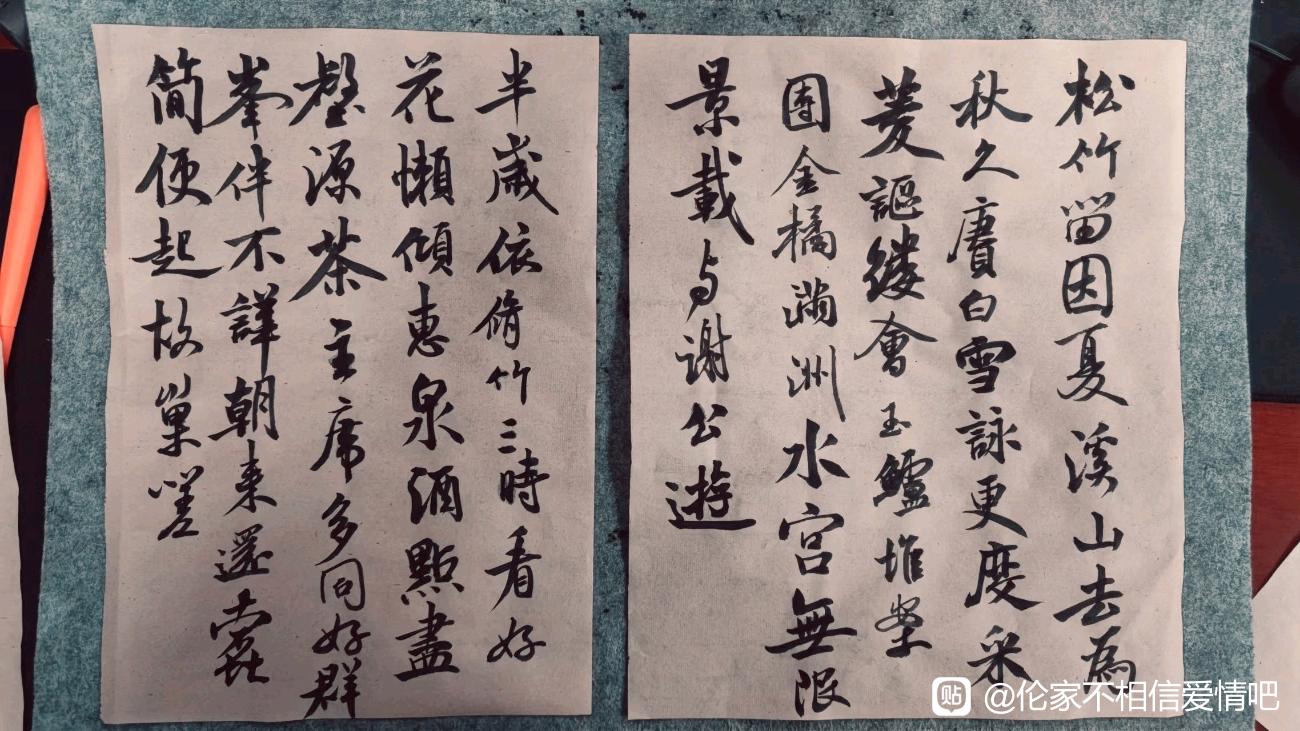 松竹留因夏溪山去為
秋久賡白雪詠更度采
菱謳縷會玉鱸堆案
團金橘滿洲水宮無限
景載與謝公遊
半歲依脩竹三時看好
花懶傾惠泉酒點盡
壑源茶主席多同好群
峯伴不譁朝来還蠹
簡便起故巢嗟
貼 @伦家不相信爱情吧